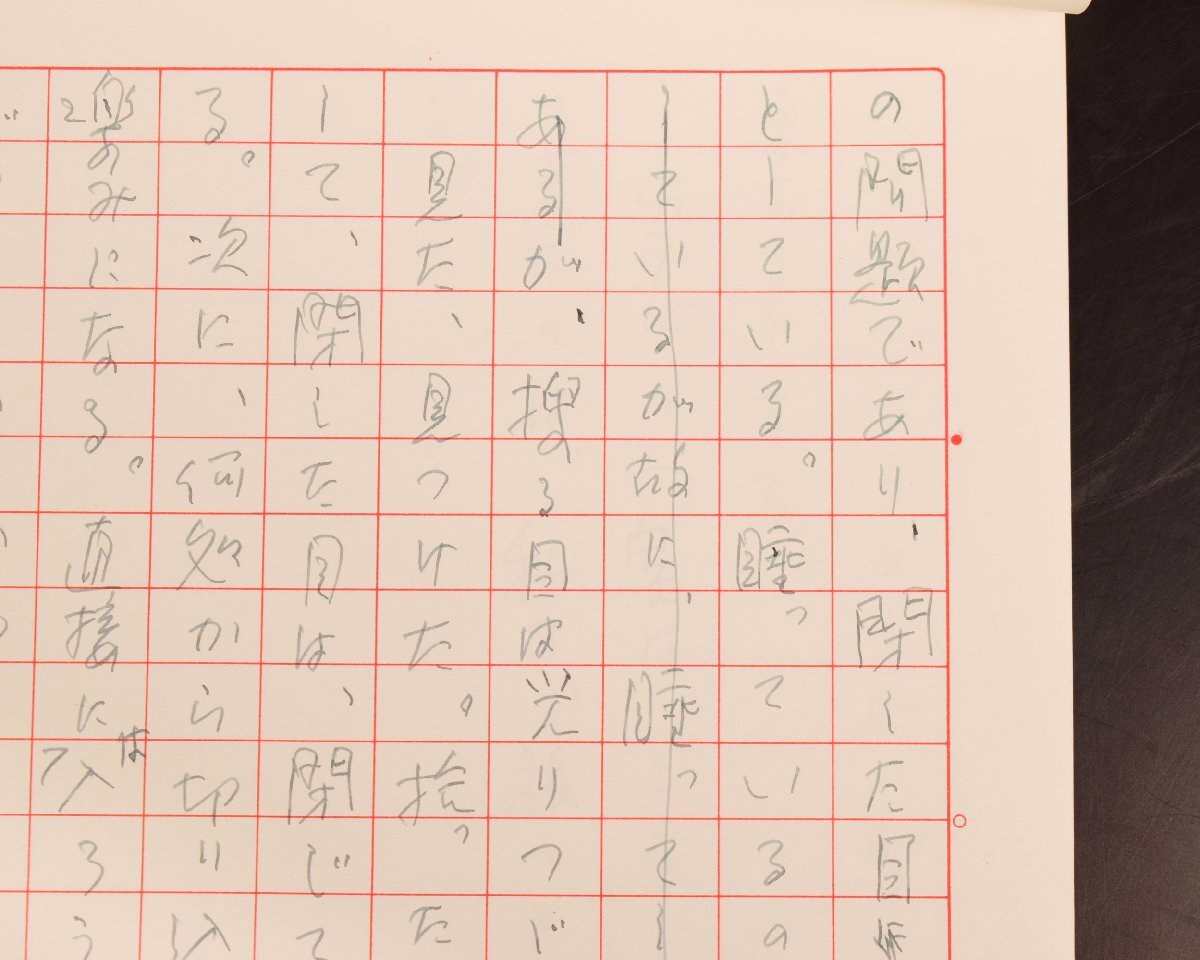 の問題であり、閉した目
としている。睡っているの
しているが故に、睡ってし
あるが、捜る目は光りつづ
見た、見つけた。拾った
して、閉した目は、閉じて
る。次に、何処から切り込
のみになる。直接には入ろう